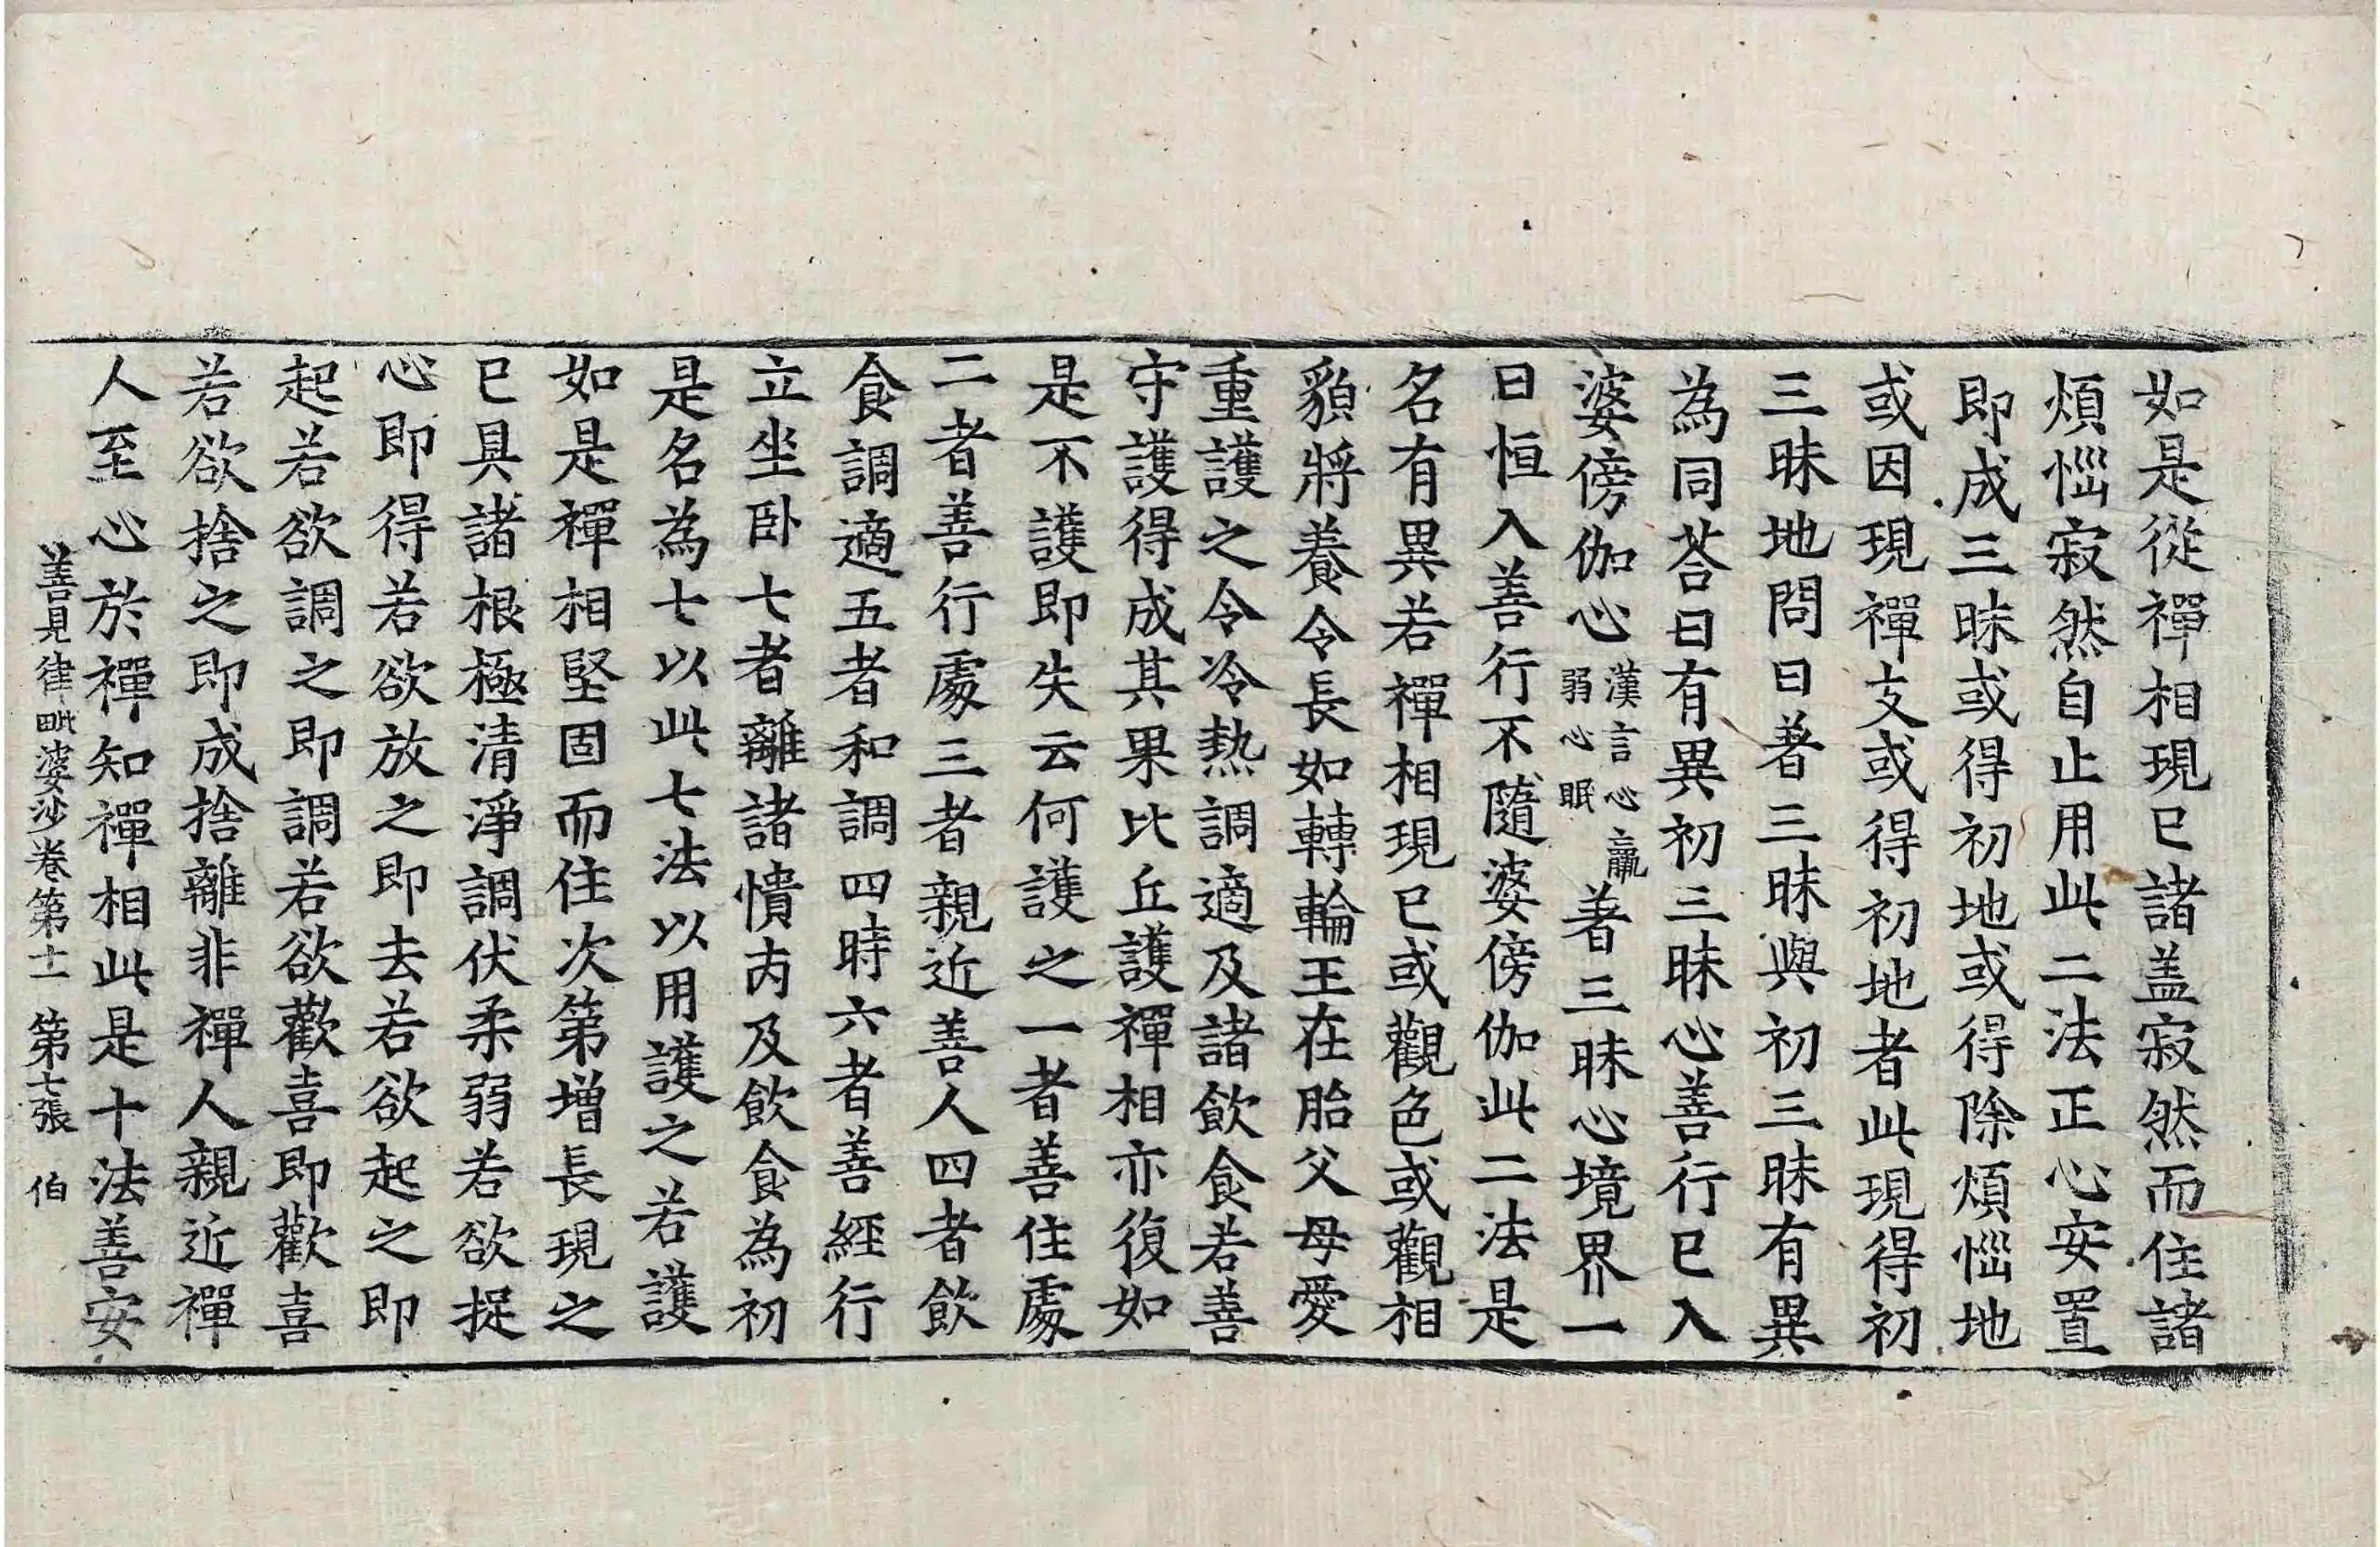 如是從禪相現已諸盖寂然而住諸
煩惱寂然自止用此二法正心安置
即成三昧或得初地或得除煩惱地
或因現禪支或得初地者此現得初
三昧地問曰著三昧與初三昧有異
為同荅曰有異初三昧心善行已入
婆傍伽心漢言心羸弱心眠著三昧心境界一
日恒入善行不隨婆傍伽此二法是
名有異若禪相現已或觀色或觀相
䫉將養令長如轉輪王在胎父母愛
重護之令冷熱調適及諸飲食若善
守護得成其果比丘護禪相亦復如
是不護即失云何護之一者善住處
二者善行處三者親近善人四者飲
食調適五者和調四時六者善經行
立坐卧七者離諸憒丙及飲食為初
是名為七以此七法以用護之若護
如是禪相堅固而住次第增長現之
已具諸根極清淨調伏柔弱若欲捉
心即得若欲放之即去若欲起之即
起若欲調之即調若欲歡喜即歡喜
若欲捨之即成捨離非禪人親近禪
人至心於禪知禪相此是十法善安
善見律毗婆沙卷第十一 第七張 伯